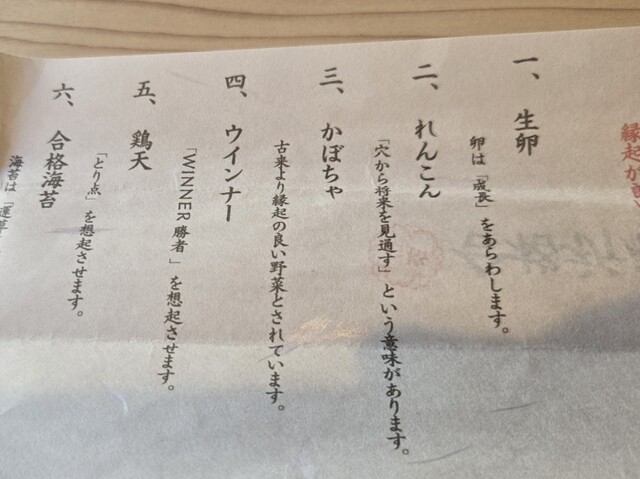 縁起が
一、生卵
卵は「成長」をあらわします。
二、れんこん
「穴から将来を見通す」という意味があります。
三、かぼちゃ
古来より縁起の良い野菜とされています。
四、ウインナー
「WINNER勝者」を想起させます。
五、鶏天
「とり点」を想起させます。
六、合格海苔
海苔は「運草